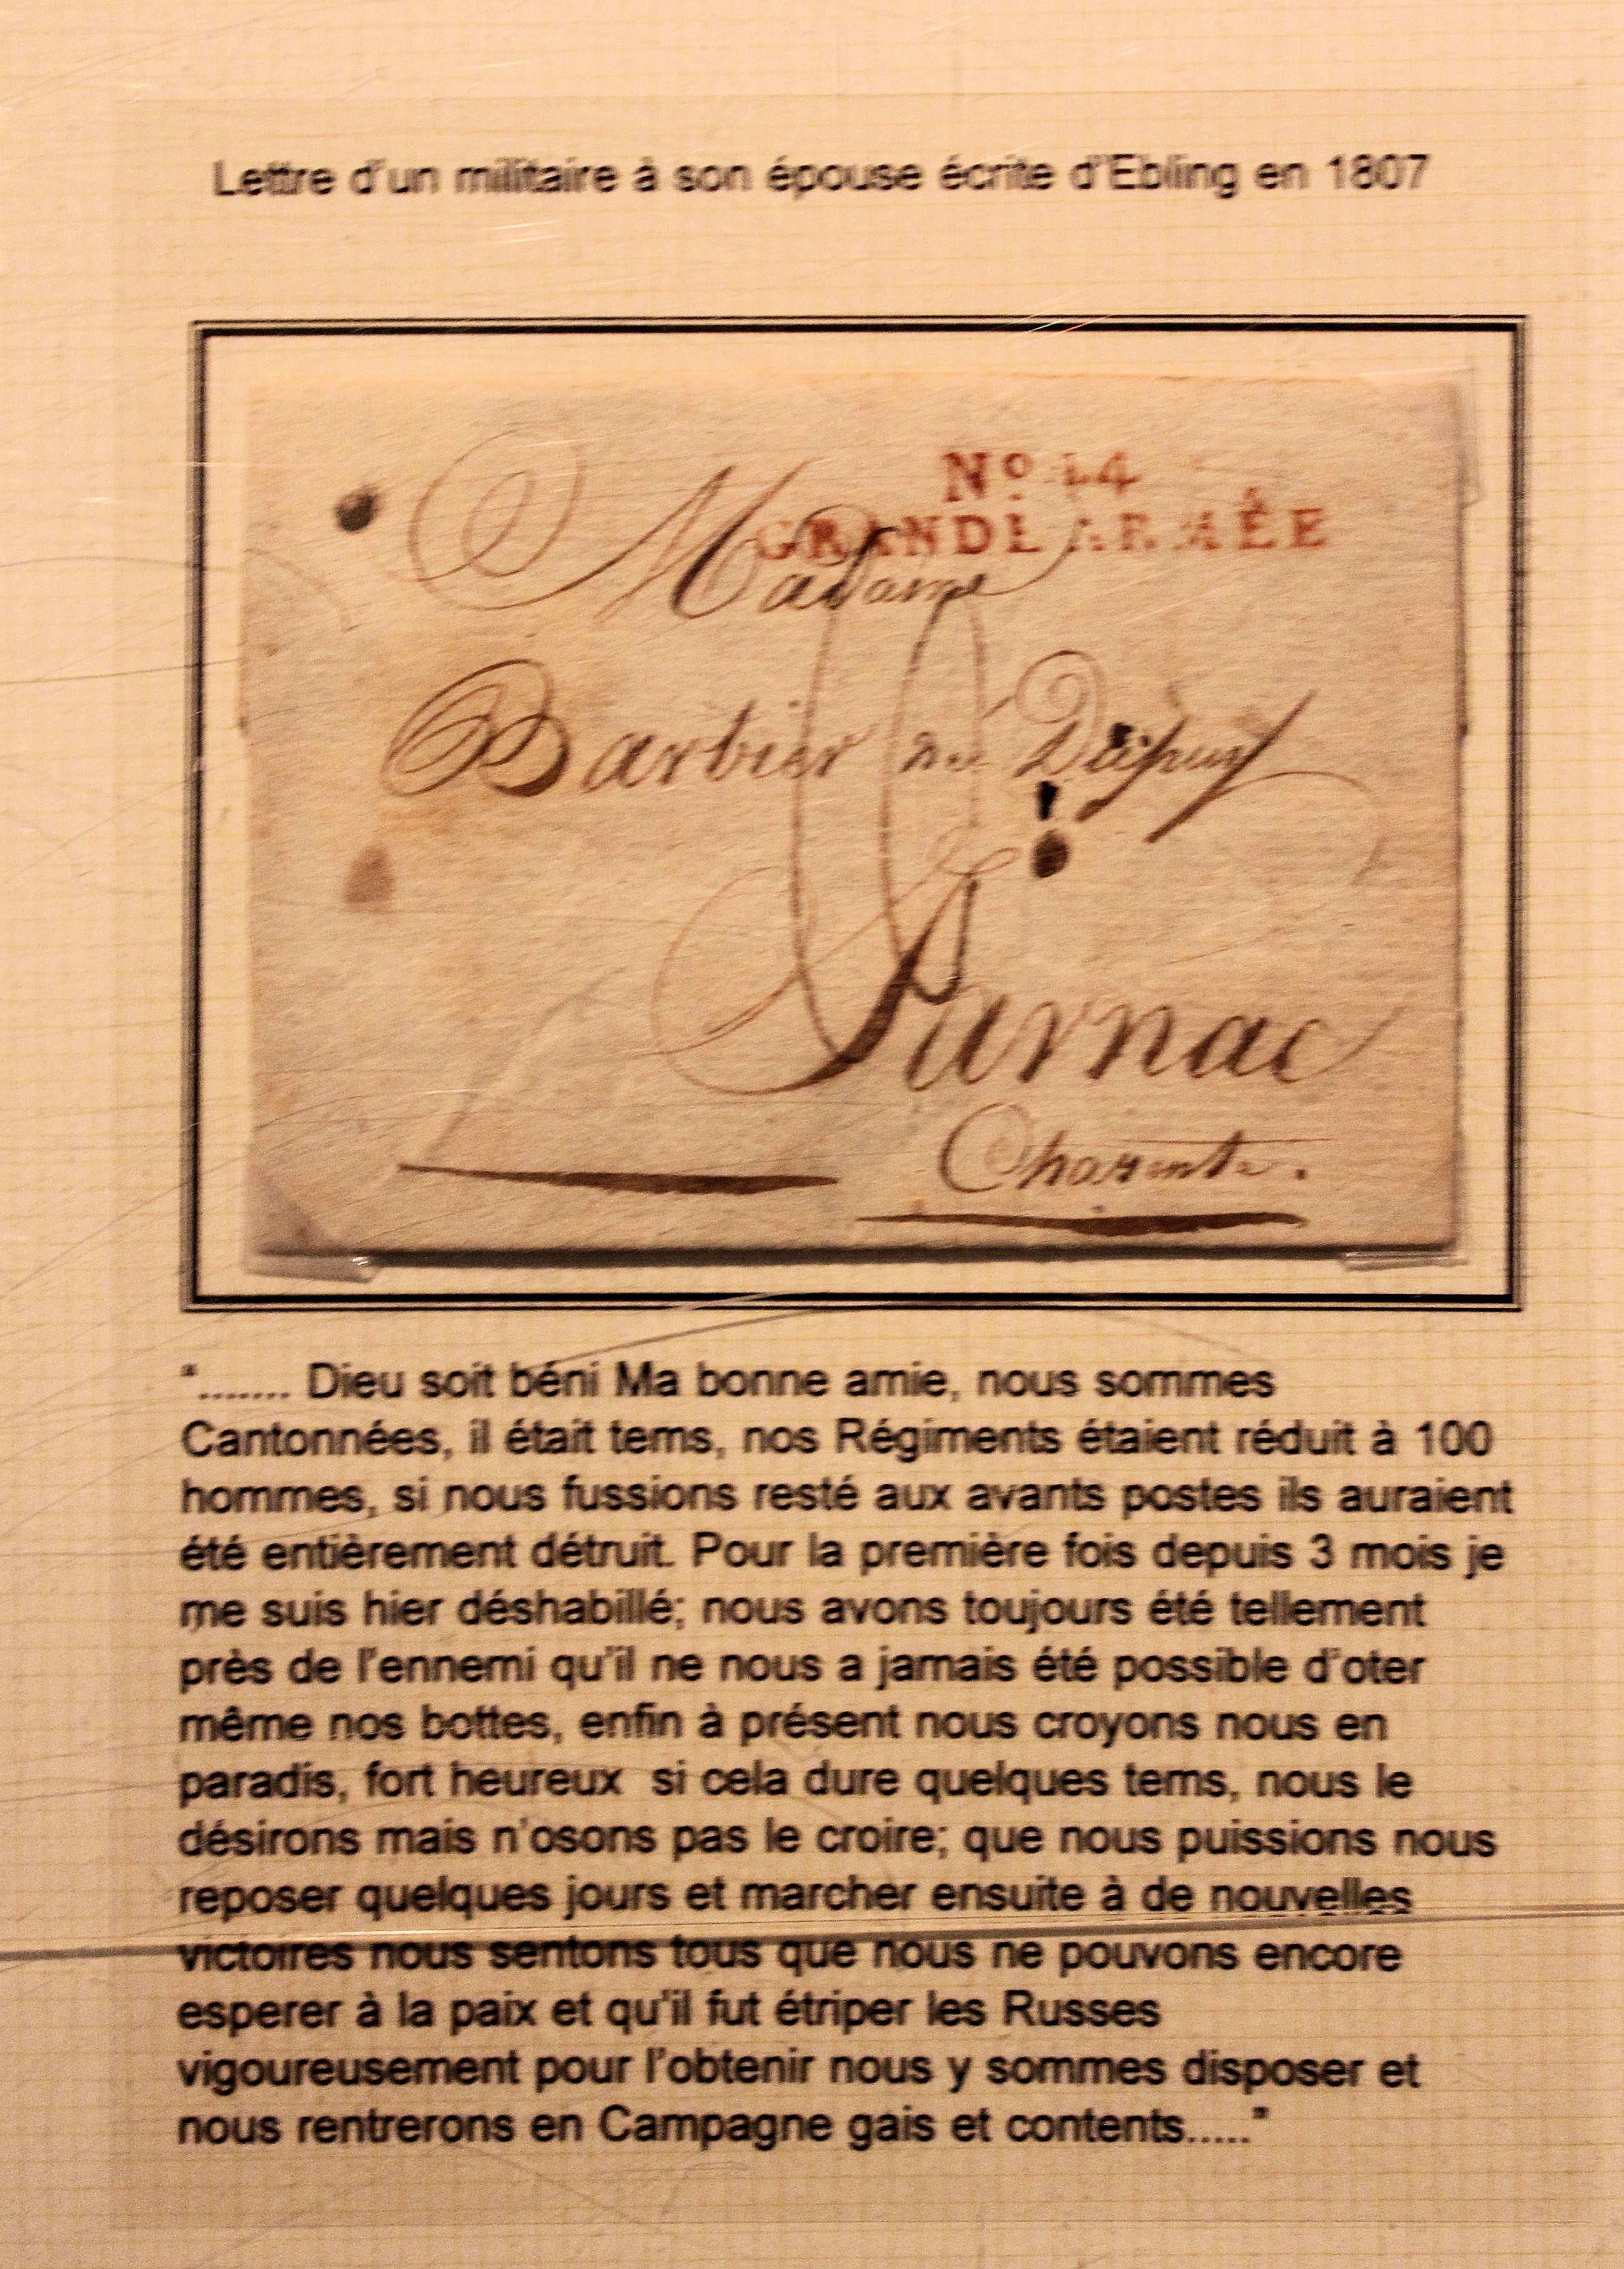 Lettre d'un militaire à son épouse écrite d'Ebling en 1807
Nº 14
GRANDE ARMÉE
Madame
Barbier née Dupuy
Jarnac
Charente.
"....... Dieu soit béni Ma bonne amie, nous sommes
Cantonnées, il était tems, nos Régiments étaient réduit à 100
hommes, si nous fussions resté aux avants postes ils auraient
été entièrement détruit. Pour la première fois depuis 3 mois je
me suis hier déshabillé; nous avons toujours été tellement
près de l'ennemi qu'il ne nous a jamais été possible d'oter
même nos bottes, enfin à présent nous croyons nous en
paradis, fort heureux si cela dure quelques tems, nous le
désirons mais n'osons pas le croire; que nous puissions nous
reposer quelques jours et marcher ensuite à de nouvelles
victoires nous sentons tous que nous ne pouvons encore
esperer à la paix et qu'il fut étriper les Russes
vigoureusement pour l'obtenir nous y sommes disposer et
nous rentrerons en Campagne gais et contents....."